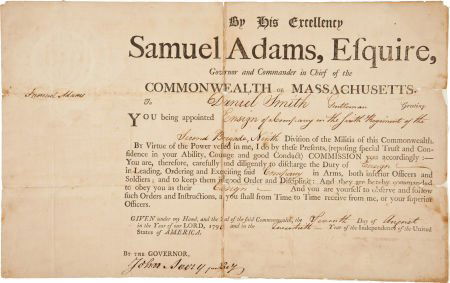 By His Excellency
Samuel Adams, Esquire,
Governor and Commander in Chief of the
COMMONWEALTH OF MASSACHUSETTS.
Samuel Adams
To Daniel Smith Gentleman Greeting
YOU being appointed Ensign of a Company in the Sixth Regiment of the
Second Brigade, Ninth Division of the Militia of this Commonwealth.
By Virtue of the Power vested in me, I do by these Presents, (reposing special Trust and Con-
fidence in your Ability, Courage and good Conduct) COMMISSION you accordingly:—
You are, therefore, carefully and diligently to discharge the Duty of Ensign
in Leading, Ordering and Exercising said Company in Arms, both inferior Officers and
Soldiers; and to keep them in good Order and Discipline: And they are hereby commanded
to obey you as their Ensign And you are yourself to observe and follow
such Orders and Instructions, as you shall from Time to Time receive from me, or your superior
Officers.
GIVEN under my Hand, and the Seal of the said Commonwealth, the Day of August
in the Year of our LORD, 179 and in the Year of the Independence of the United
States of AMERICA.
BY THE GOVERNOR,
John Avery Secy